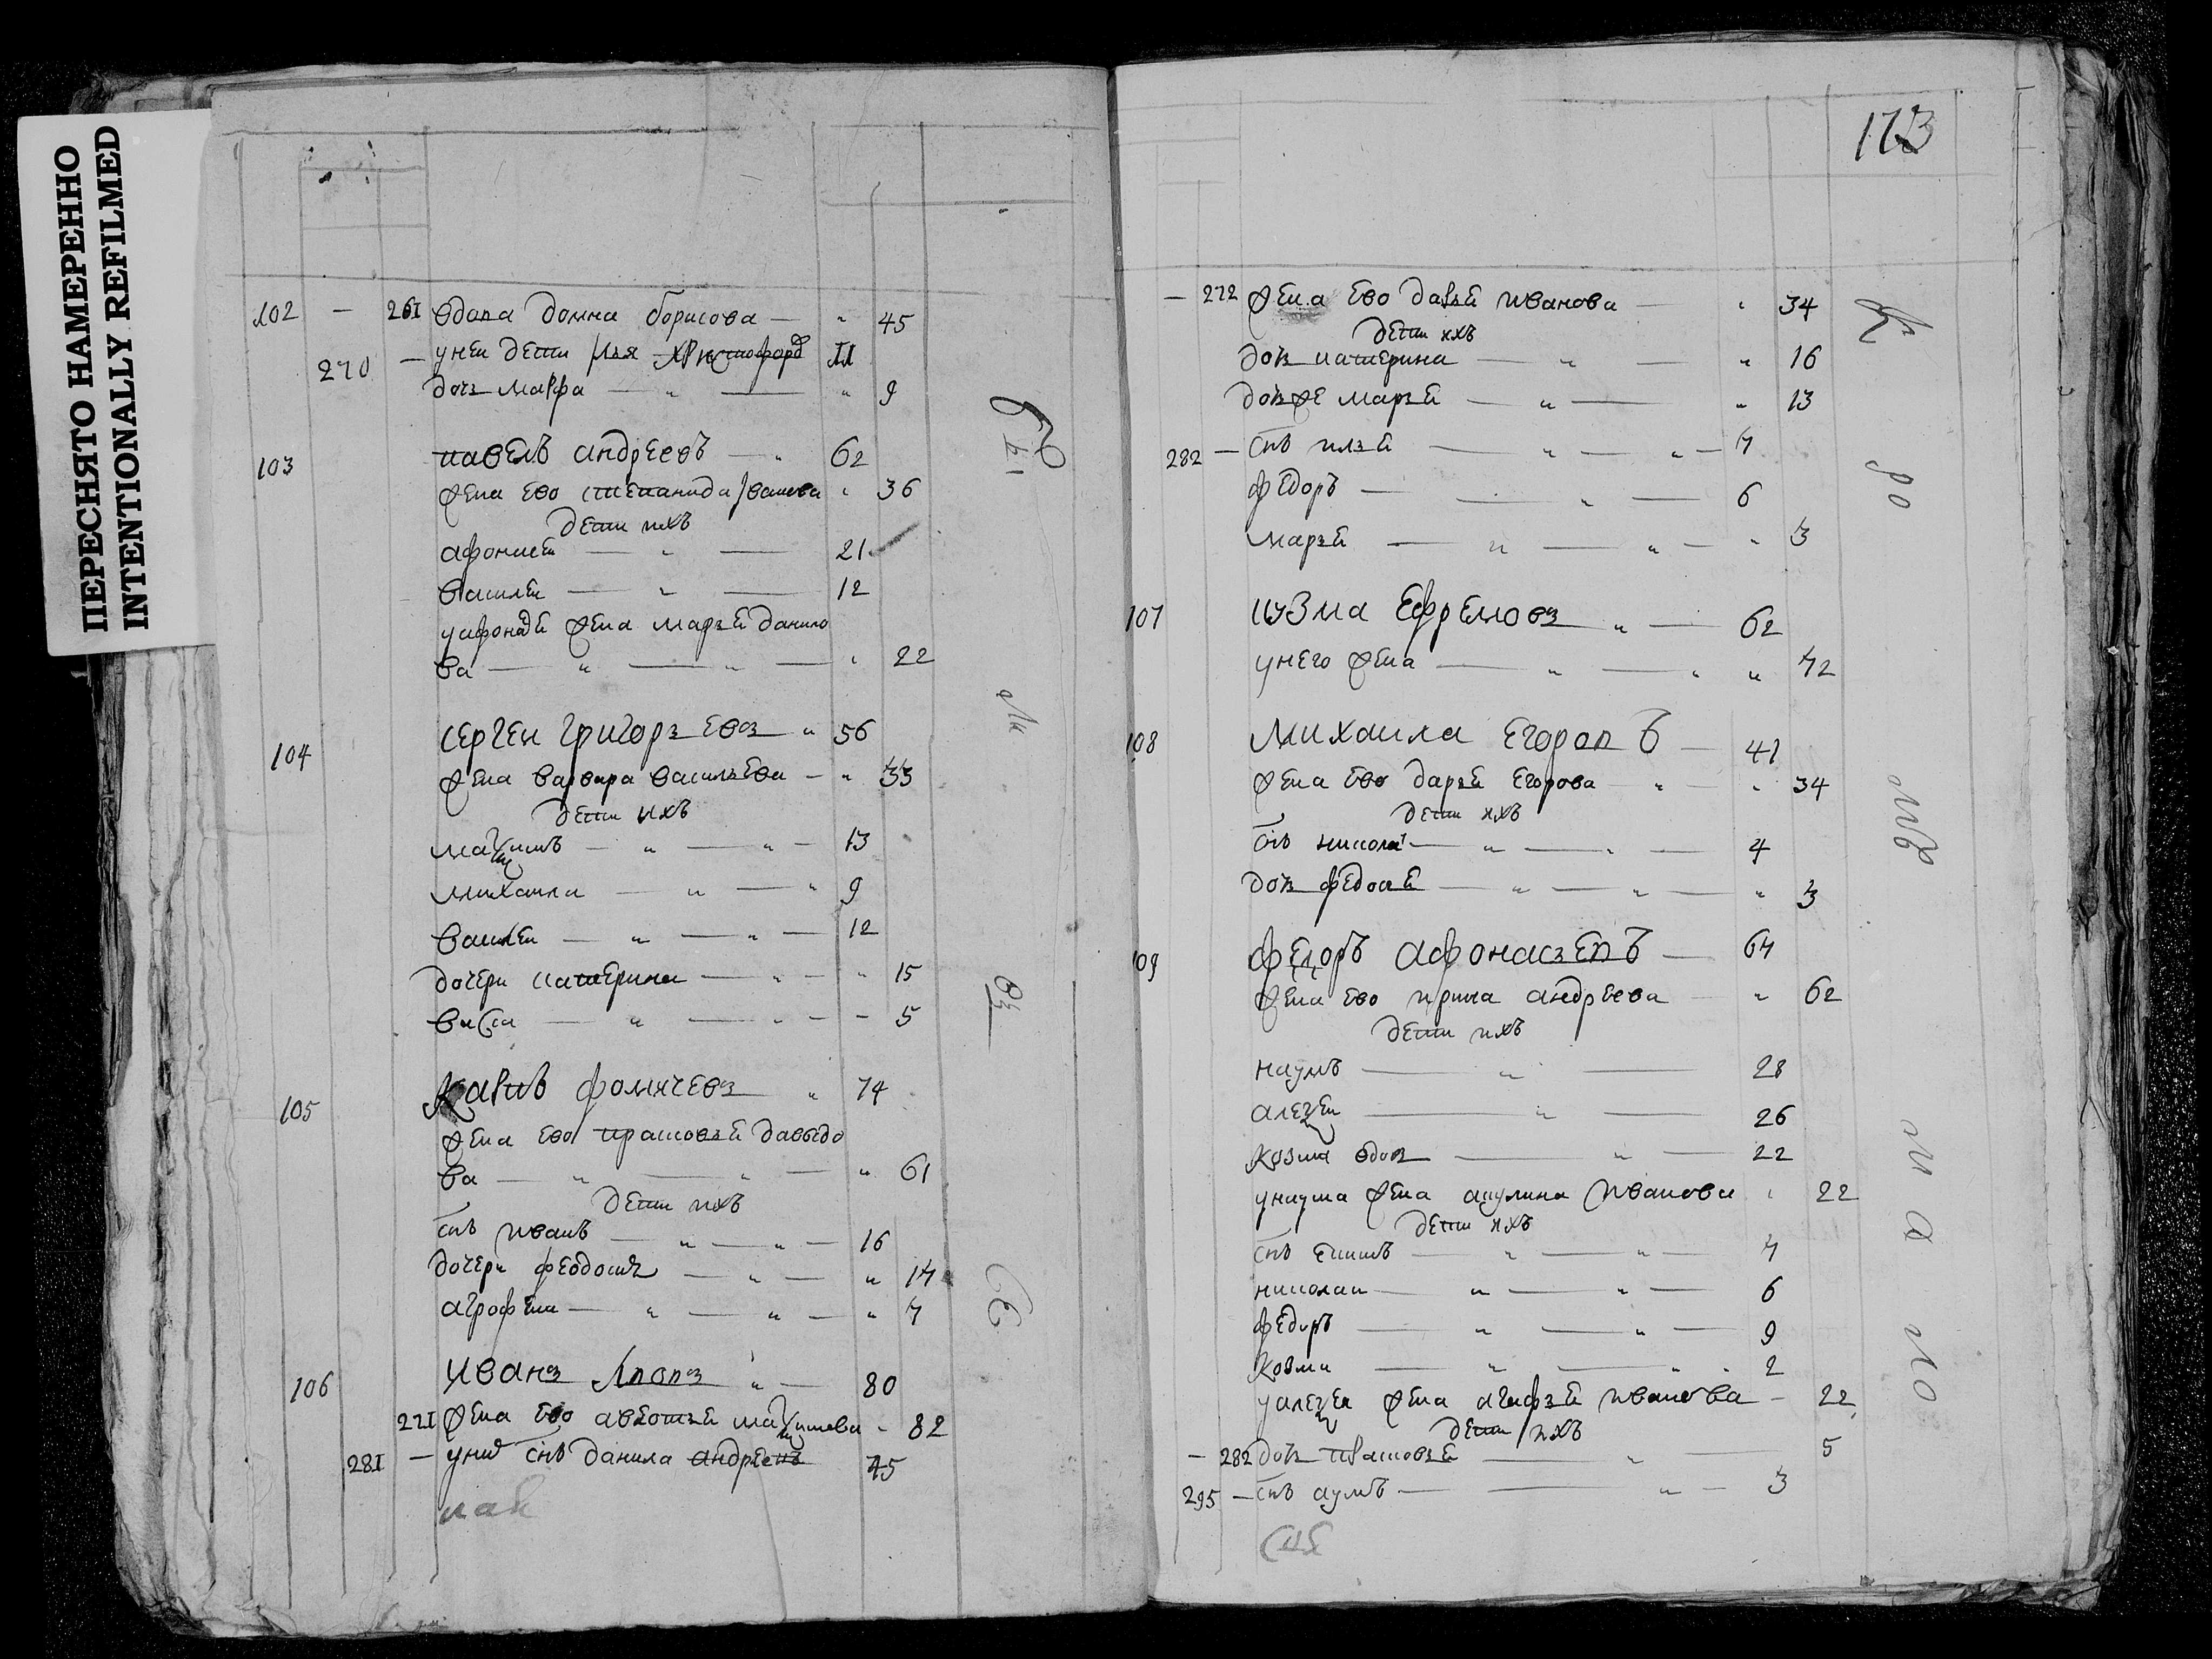 ПЕРЕСНЯТО НАМЕРЕННО
INTENTIONALLY REFILMED
102 — 261 вдова домна борисова — " 45
270 — унеи дети илья христофоръ 11
дочь марфа — " — " 9
103 павелъ андреевъ — " 62
жена ево степанида иванова " 36
дети ихъ
афонасеи — " — 21
василеи — " — 12
уафонасеи жена марья данило
ва — " — " — " 22
104 сергеи григорьевъ " 56
жена варвара васильева — " 33
дети ихъ
максимъ — " — " — 13
михаила — " — " 9
василеи — " — " — 12
дочери катерина — " — " 15
васса — " — " — - 5
105 карпъ фомичевъ " 74
жена ево прасковья давыдо
ва — " — " — " 61
дети ихъ
снъ иванъ — " — " — 16
дочери феодосия — " — " 14
агрофена — " — " — " 7
106 иванъ " — 80
271 жена ево авдотья максимова - 82
281 — унихъ снъ данила андреевъ 45
173
— 272 жена ево дарья иванова — " 34
дети ихъ
дочь катерина — " — " 16
дочь же марья — " — " 13
282 — снъ илья — " — " — 7
федоръ — " — 6
марья — " — " — " 3
107 кузма ефремовъ " — 62
унего жена — " — " " 72
108 михаила егоровъ — 41
жена ево дарья егорова — " — " 34
дети ихъ
снъ николаи — " — " — 4
дочь федосья — " — " — " 3
109 федоръ афонасьевъ — 64
жена ево ирина андреева — " 62
дети ихъ
наумъ — " — 28
алексеи — " — 26
козма вдовъ — " — 22
унаума жена акулина иванова " 22
дети ихъ
снъ екимъ — " — " — 7
николаи — " — " — 6
федоръ — " — " — 9
козма — " — " " 2
уалексея жена агафья иванова — 22
дети ихъ
— 282 дочь прасковья — " — 5
295 — снъ наумъ — " — 3